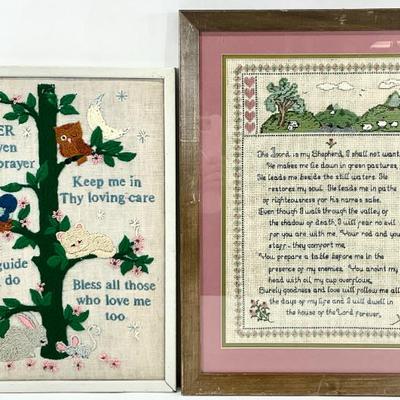 ER
ven
prayer
Keep me in
Thy loving care
guide
do
Bless all those
who love me
too
The Lord is my Shepherd, I shall not want.
He makes me lie down in green pastures,
He leads me beside the still waters. He
restores my soul. He leads me in paths
of righteousness for his names sake.
Even though I walk through the valley of
the shadow of death, I will fear no evil
for you are with me. Your rod and your
staff - they comfort me.
You prepare a table before me in the
presence of my enemies. You anoint my
head with oil, my cup overflows,
Surely goodness and love will follow me all
the days of my life and I will dwell in
the house of the Lord forever.